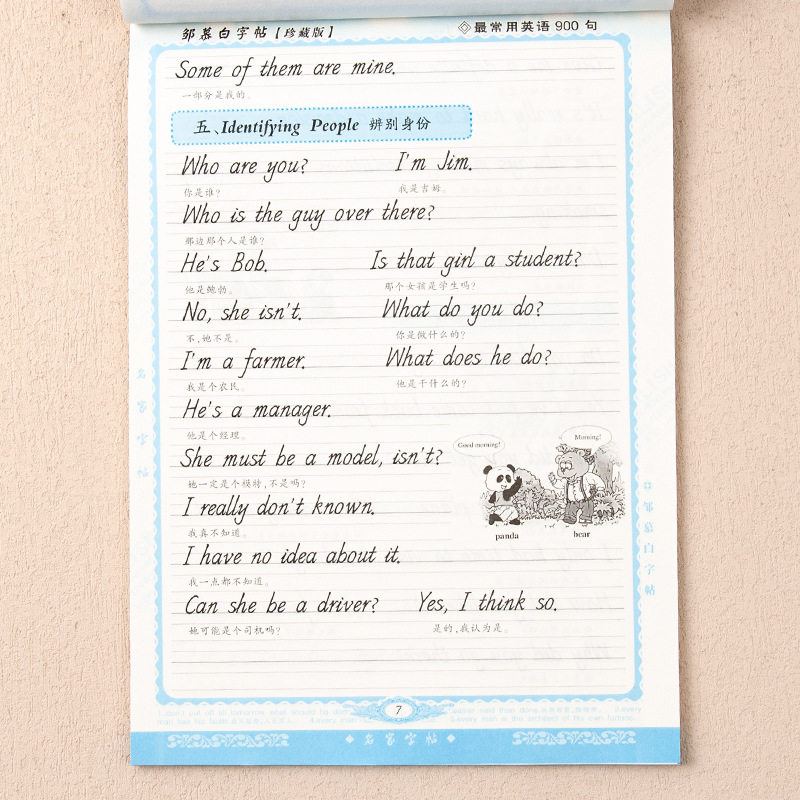 邹慕白字帖【珍藏版】 最常用英语900句
Some of them are mine.
一部分是我的。
五、Identifying People 辨别身份
Who are you? I'm Jim.
你是谁? 我是吉姆。
Who is the guy over there?
那边那个人是谁?
He's Bob. Is that girl a student?
他是鲍勃。 那个女孩是学生吗?
No, she isn't. What do you do?
不,她不是。 你是做什么的?
I'm a farmer. What does he do?
我是个农民。 他是干什么的?
He's a manager.
他是个经理。
Good morning! Minning!
She must be a model, isn't?
她一定是个模特,不是吗?
I really don't known.
我真不知道。
panda bear
I have no idea about it.
我一点都不知道。
Can she be a driver? Yes, I think so.
她可能是个司机吗? 是的,我认为是。
名家字帖
邹慕白字帖
7
3.every man is the architect of his own fortune.